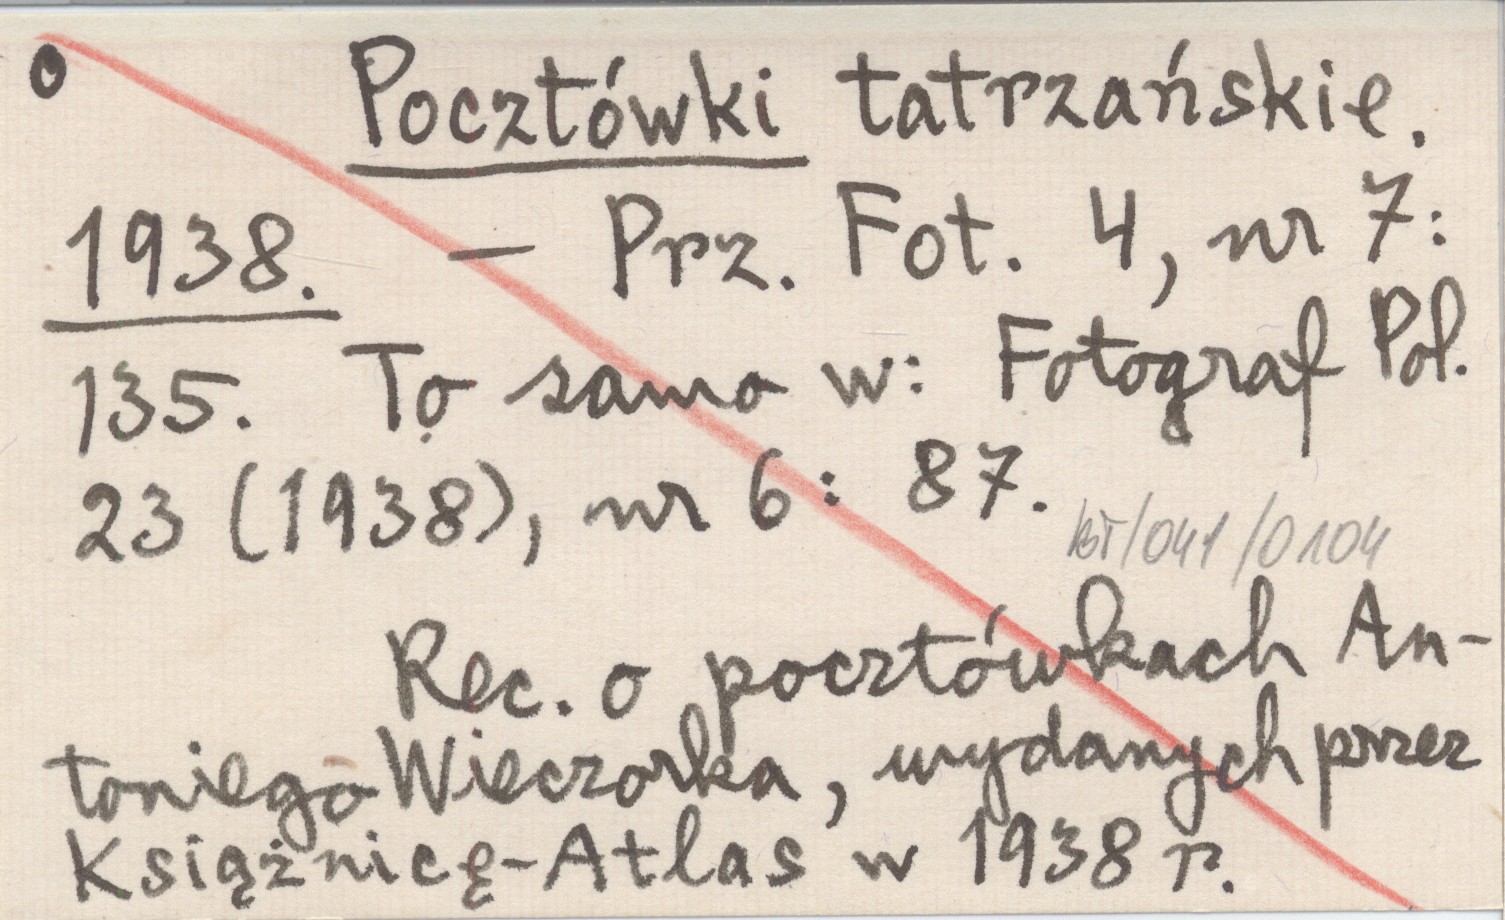 Pocztówki tatrzańskie.
1938. — Prz. Fot. 4, nr 7:
135. To samo w: Fotograf Pol.
23 (1938), nr 6: 87.
/041/0104
Rec. o pocztówkach An-
toniego Wieczorka, wydanych przez
Książnicę-Atlas w 1938 r.